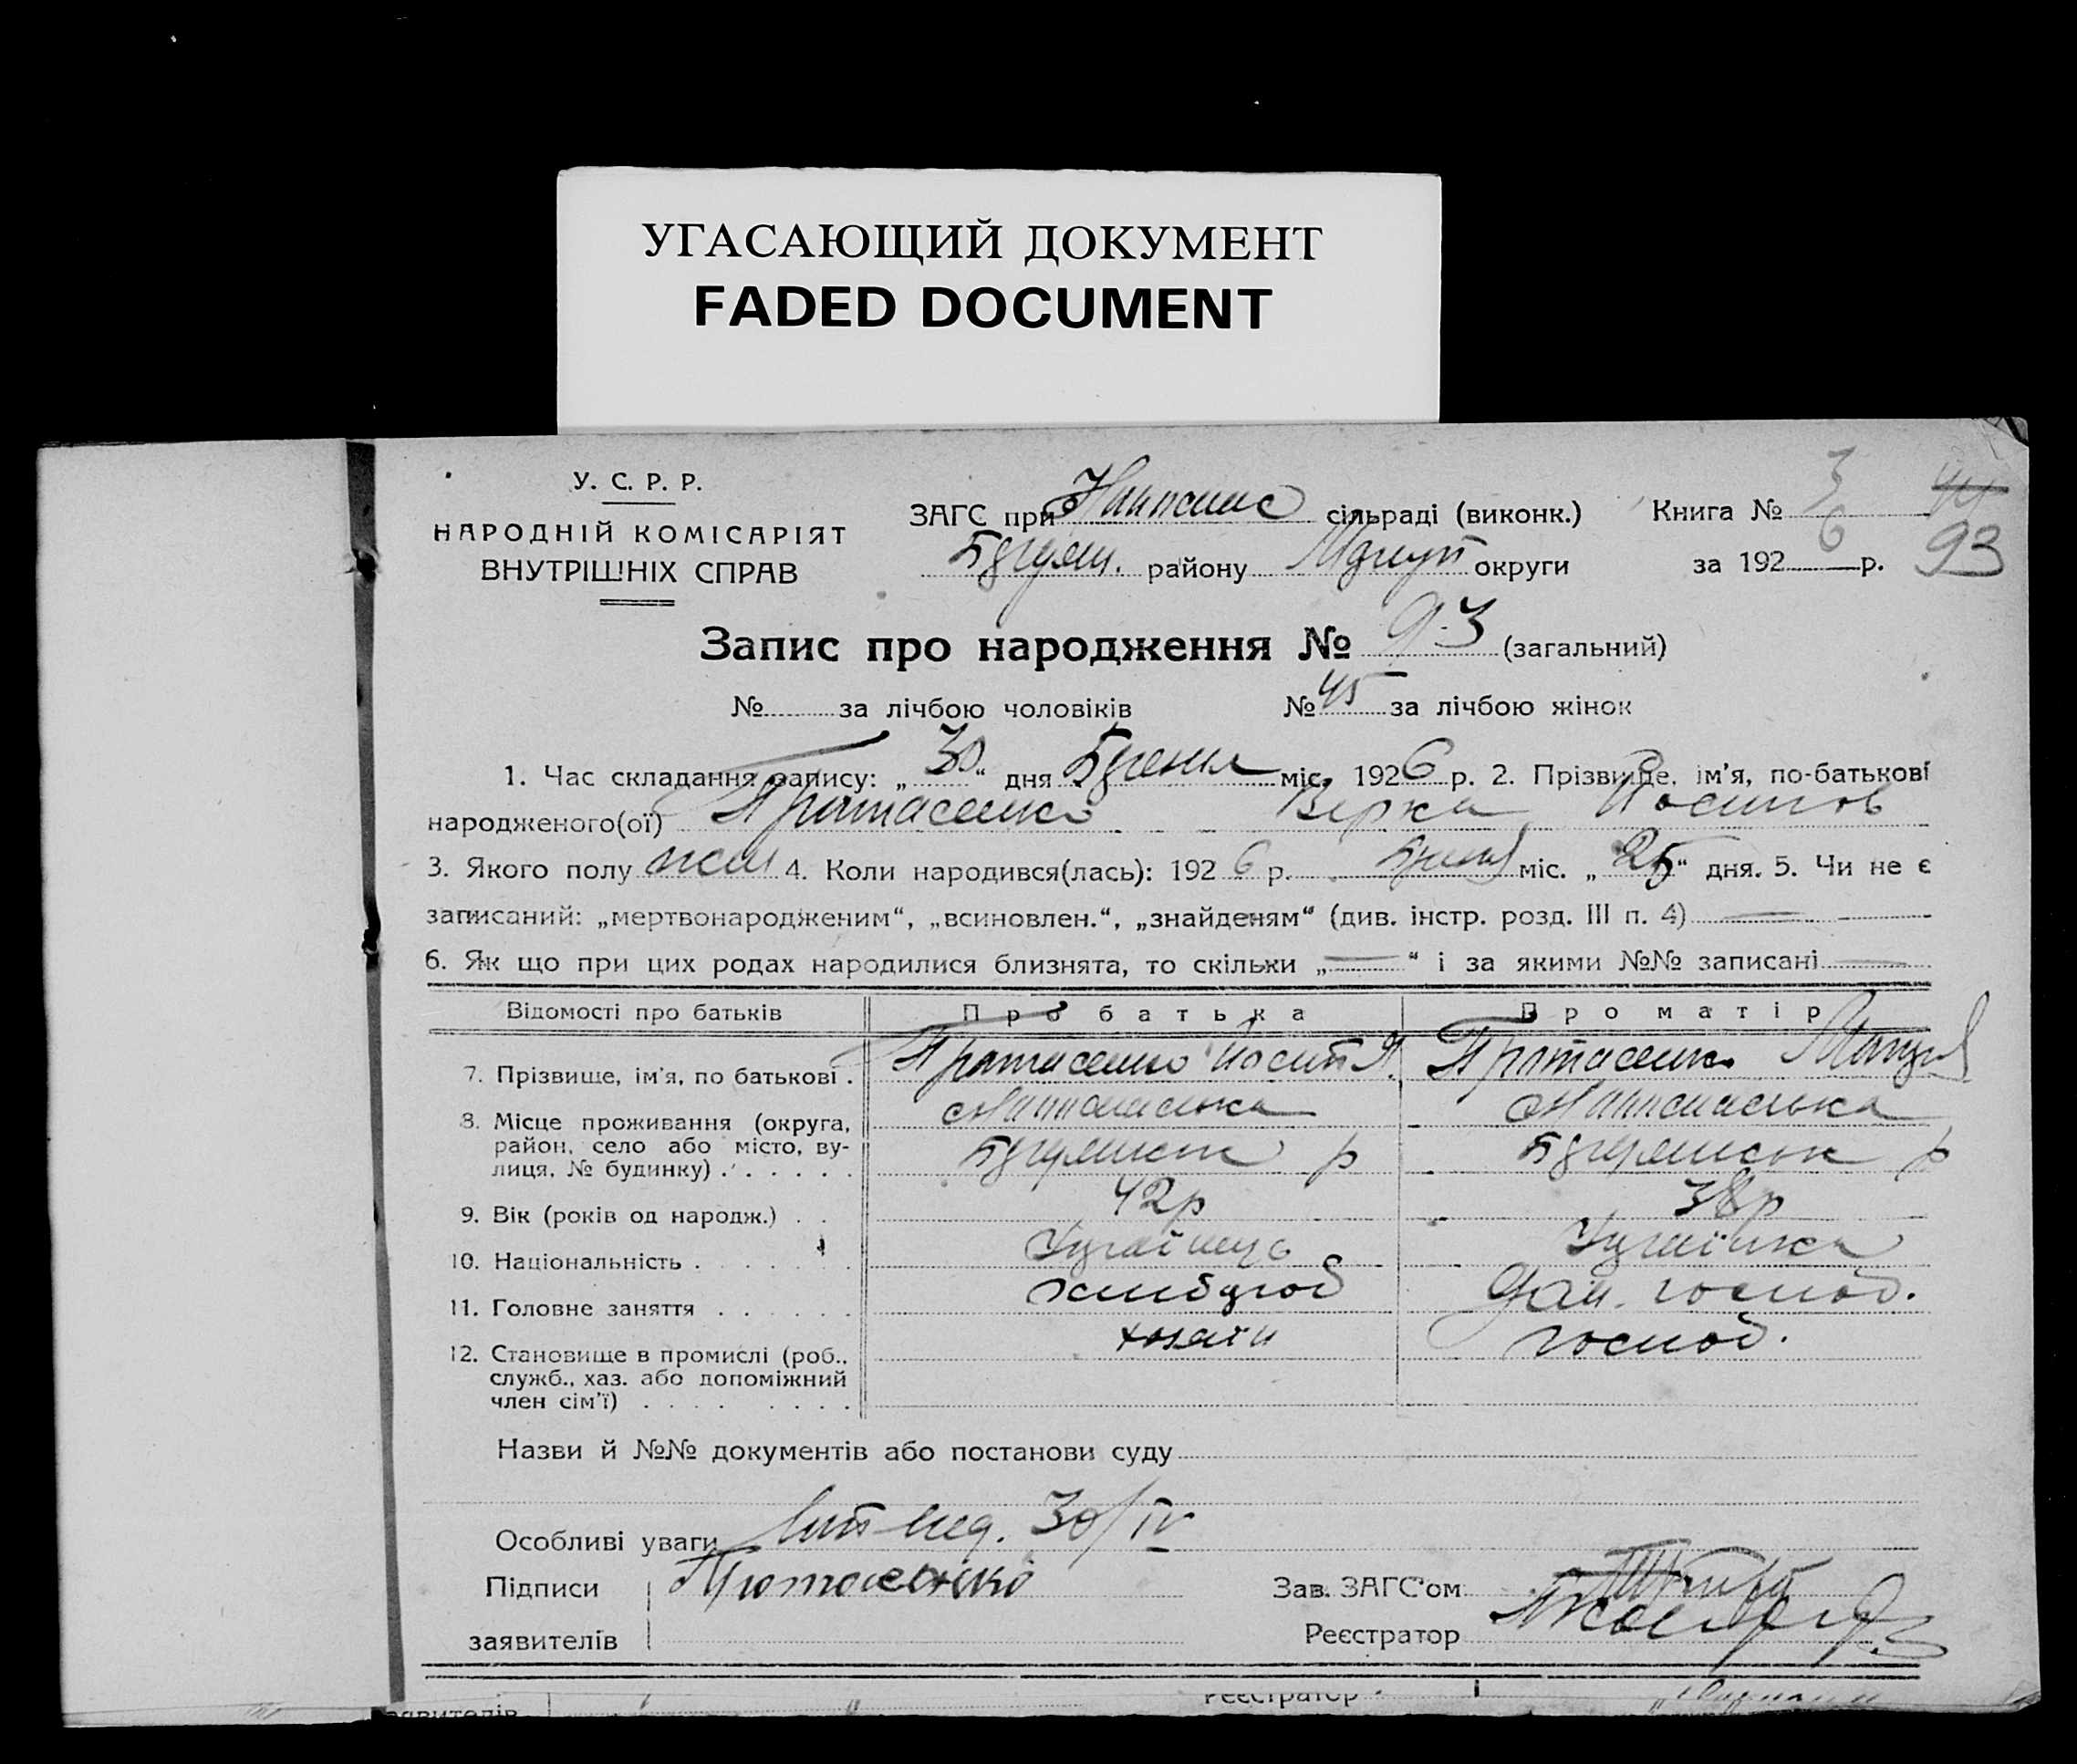 УГАСАЮЩИЙ ДОКУМЕНТ
FADED DOCUMENT
У. С. Р. Р.
НАРОДНІЙ КОМІСАРІЯТ
ВНУТРІШНІХ СПРАВ
ЗАГС при сільраді (виконк.)
району округи
Книга № 3
за 1926 р.
44
93
Запис про народження № 93 (загальний)
№ за лічбою чоловіків № 45 за лічбою жінок
1. Час складання запису: „30“ дня міс. 1926 р. 2. Прізвище, ім'я, по-батькові
народженого(ої) Протасенко Верка Йосипов
3. Якого полу жін 4. Коли народився(лась): 1926 р. міс. „25“ дня. 5. Чи не є
записаний: „мертвонародженим“, „всиновлен.“, „знайденям“ (див. інстр. розд. III п. 4) —
6. Як що при цих родах народилися близнята, то скільки „—“ і за якими №№ записані —
Відомості про батьків Про батька Про матір
7. Прізвище, ім'я, по батькові . Протасенко Йосип Протасенко
8. Місце проживання (округа,
район, село або місто, ву-
лиця, № будинку) . . . . . . р р
9. Вік (років од народж.) . . 42р 38р
10. Національність . . . . . . Українець Українка
11. Головне заняття . . . . . . хлібороб Дом. господ.
12. Становище в промислі (роб.,
служб., хаз. або допоміжний
член сім'ї) . . . . . . . . хозяїн господ.
Назви й №№ документів або постанови суду
Особливі уваги 30/IV
Підписи Протасенко
заявителів
Зав. ЗАГС'ом
Реєстратор
Реєстратор
заявителів